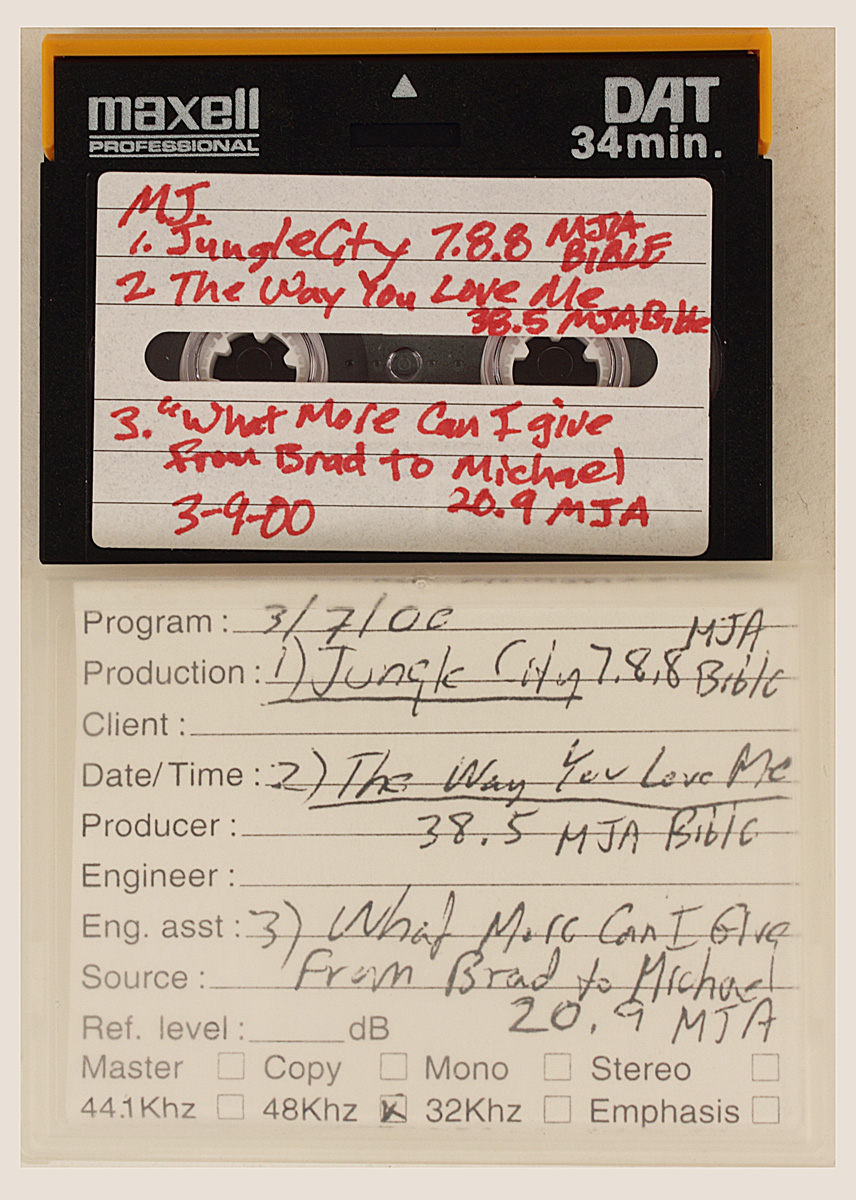 maxell
PROFESSIONAL
DAT
34min.
MJ.
1. Jungle City 7.8.8 MJA
BIBLE
2 The Way You Love Me
38.5 MJA Bible
3. "What More Can I give
from Brad to Michael
3-9-00 20.9 MJA
Program: 3/7/00 MJA
Production: 1) Jungle City 7.8.8 Bible
Client:
Date/Time: 2) The Way You Love Me
Producer: 38.5 MJA Bible
Engineer:
Eng. asst: 3) What More Can I Give
Source: From Brad to Michael
Ref. level: dB 20.9 MJA
Master Copy Mono Stereo
44.1Khz 48Khz 32Khz Emphasis